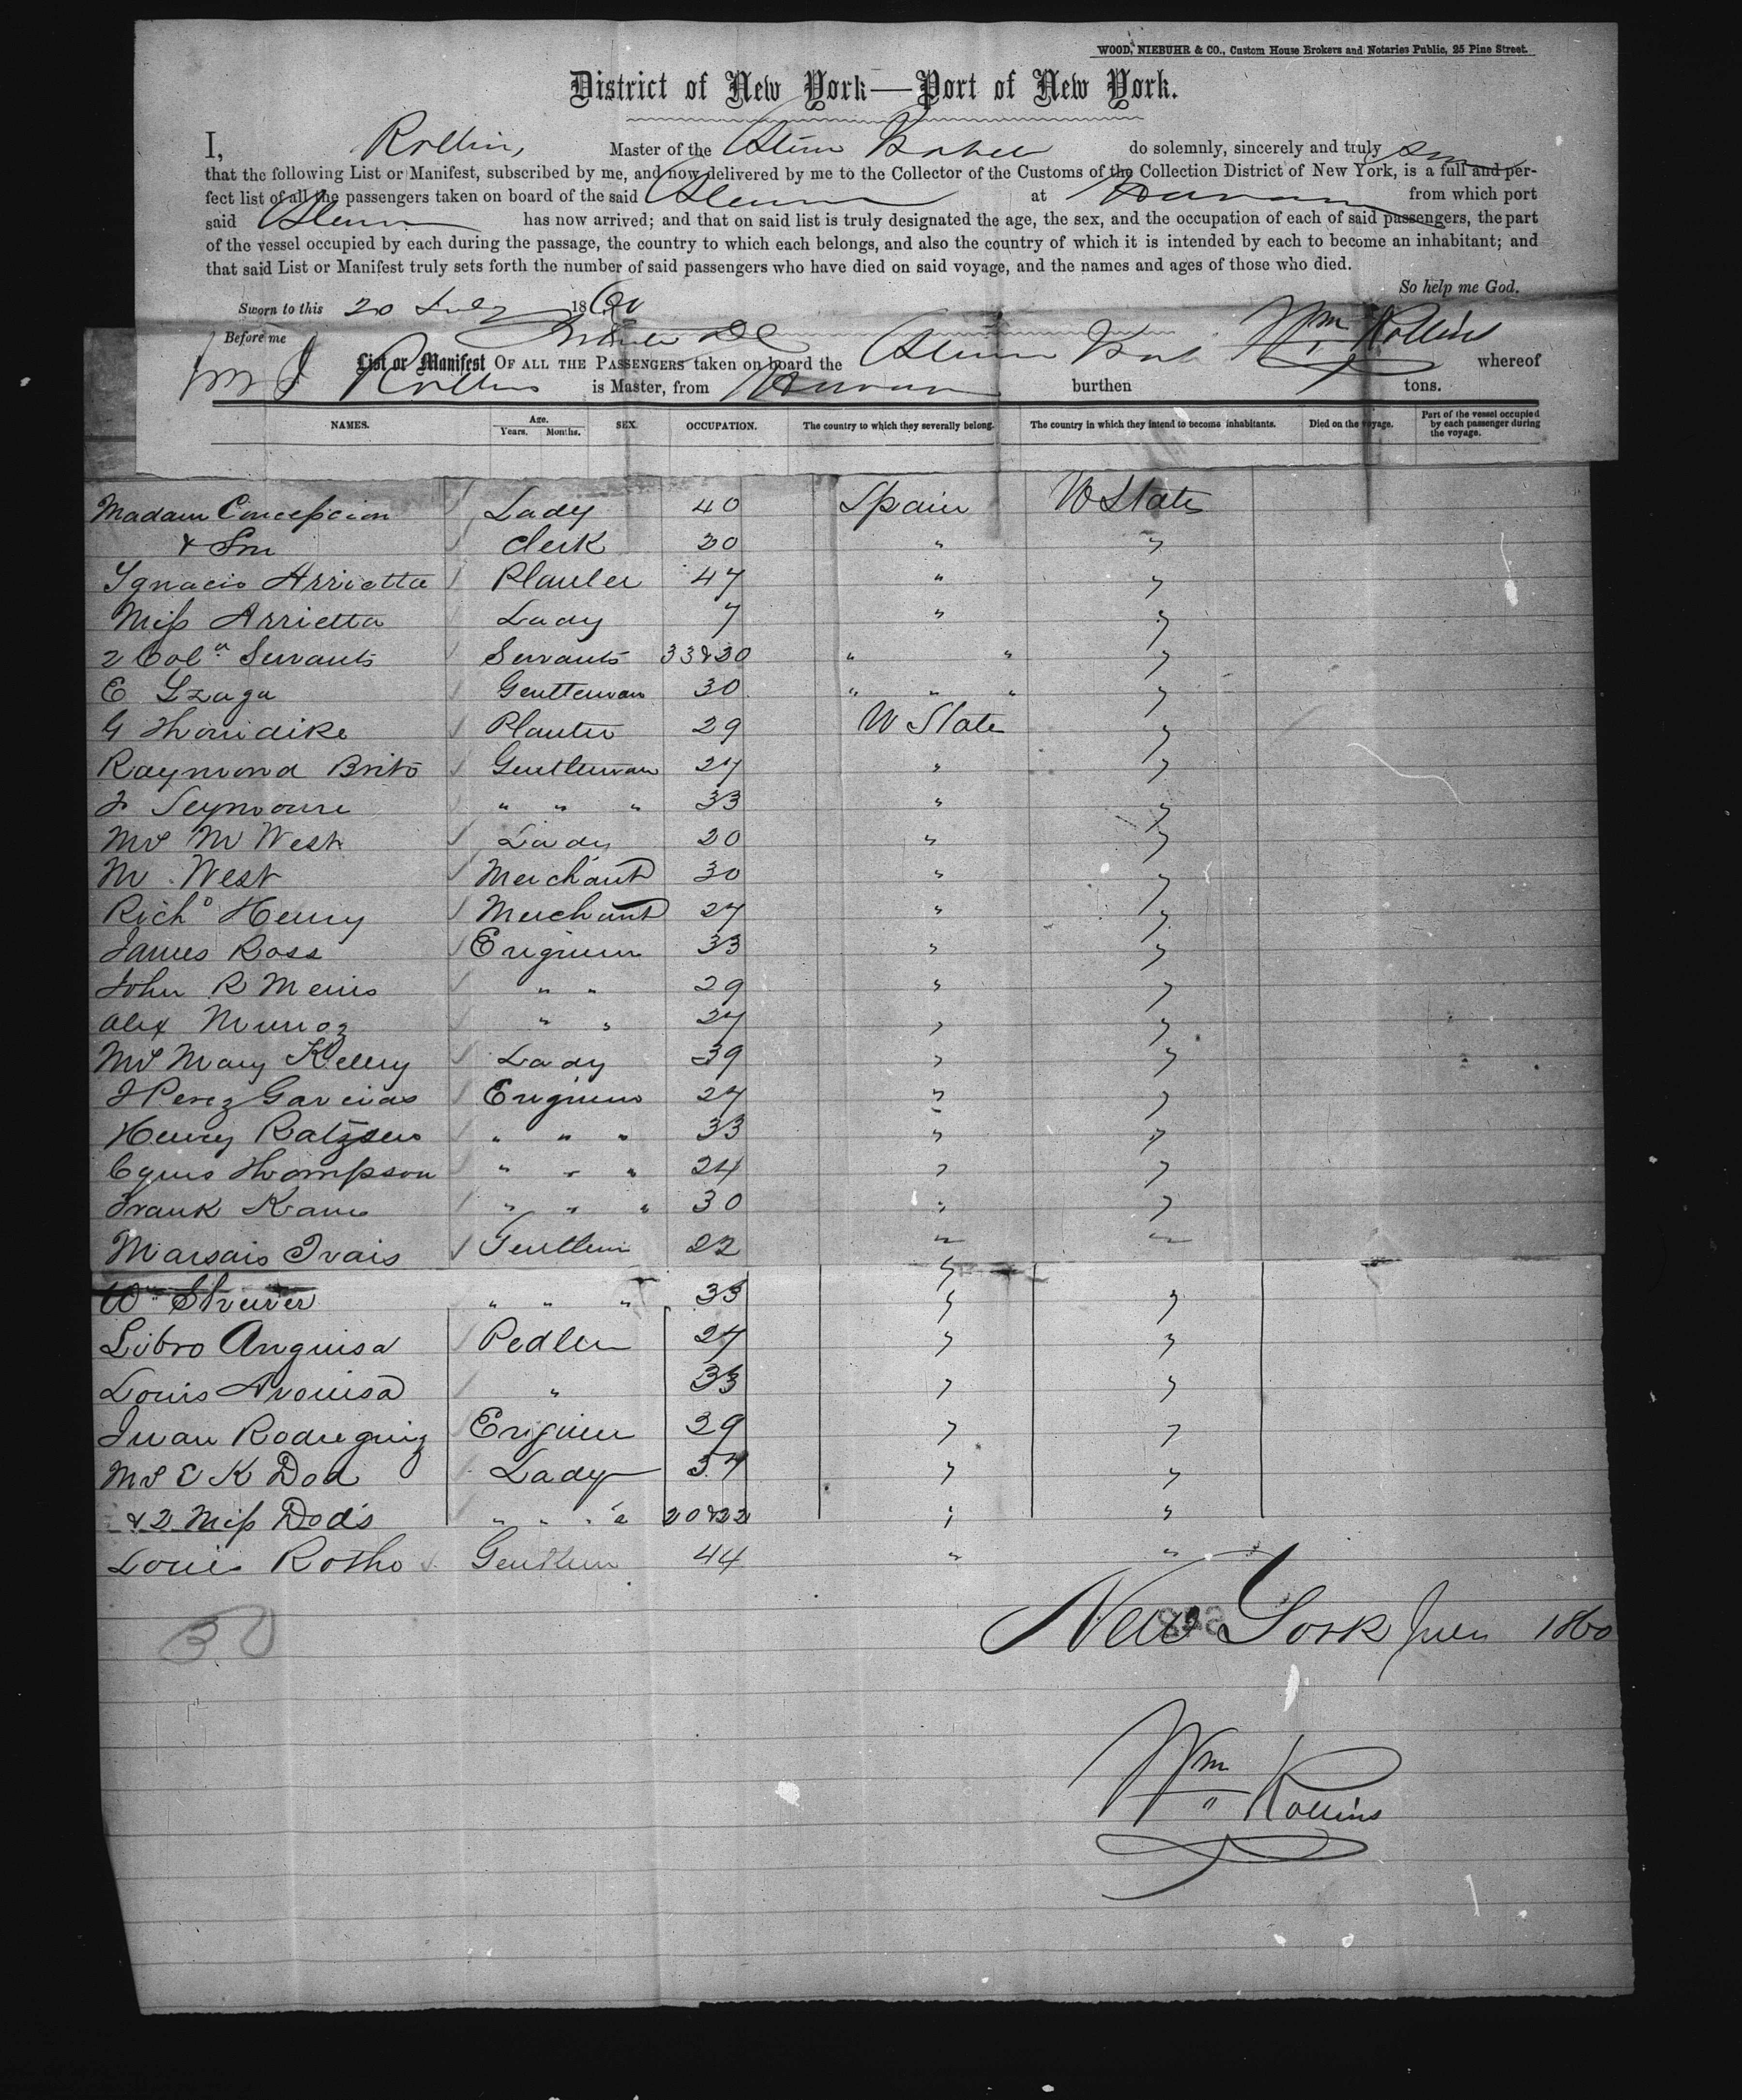 WOOD, NIEBUHR & CO., Custom House Brokers and Notaries Public, 25 Pine Street.
District of New York—Port of New York.
I, Rollins Master of the do solemnly, sincerely and truly
that the following List or Manifest, subscribed by me, and now delivered by me to the Collector of the Customs of the Collection District of New York, is a full and per-
fect list of all the passengers taken on board of the said Steamer at Havana from which port
said Steamer has now arrived; and that on said list is truly designated the age, the sex, and the occupation of each of said passengers, the part
of the vessel occupied by each during the passage, the country to which each belongs, and also the country of which it is intended by each to become an inhabitant; and
that said List or Manifest truly sets forth the number of said passengers who have died on said voyage, and the names and ages of those who died.
So help me God.
Sworn to this 20 July 1860
Before me Wm Rollins
List or Manifest OF ALL THE PASSENGERS taken on board the Steamer whereof
Rollins is Master, from Havana burthen tons.
NAMES. Age. Years. Months. SEX. OCCUPATION. The country to which they severally belong. The country in which they intend to become inhabitants. Died on the voyage. Part of the vessel occupied by each passenger during the voyage.
Madam Concepcion Lady 40 Spain U States
& Son Clerk 30 " "
Ygnacio Arrietta Planter 47 " "
Miss Arrietta Lady 7 " "
2 Cold Servants Servants 33&30 " " "
E Yzaga Gentleman 30 " " " "
G Thorndike Planter 29 U State "
Raymond Brito Gentleman 27 " "
J Seymoure " " " 33 " "
Mrs M West Lady 20 " "
M West Merchant 30 " "
Richd Henry Merchant 27 " "
James Ross Engineer 33 " "
John R Meins " " 29 " "
Alex Munoz " " 27 " "
Mrs Mary Kelly Lady 39 " "
J Perez Garcias Engineer 27 " "
Henry Ratzsen " " " 33 " "
Cyrus Thompson " " " 24 " "
Frank Kane " " " 30 " "
Marsais Ivais Gentlem 22 " "
Wm Struver " " " 33 " "
Libro Anguisa Pedler 27 " "
Louis Arouisa " 33 " "
Juan Rodreguiz Engineer 29 " "
Mrs E K Dod Lady 37 " "
& 2 Miss Dod's " " " " 20&22 " "
Louis Rotho Gentlem 44 " "
30
New York July 1860
Wm Rollins